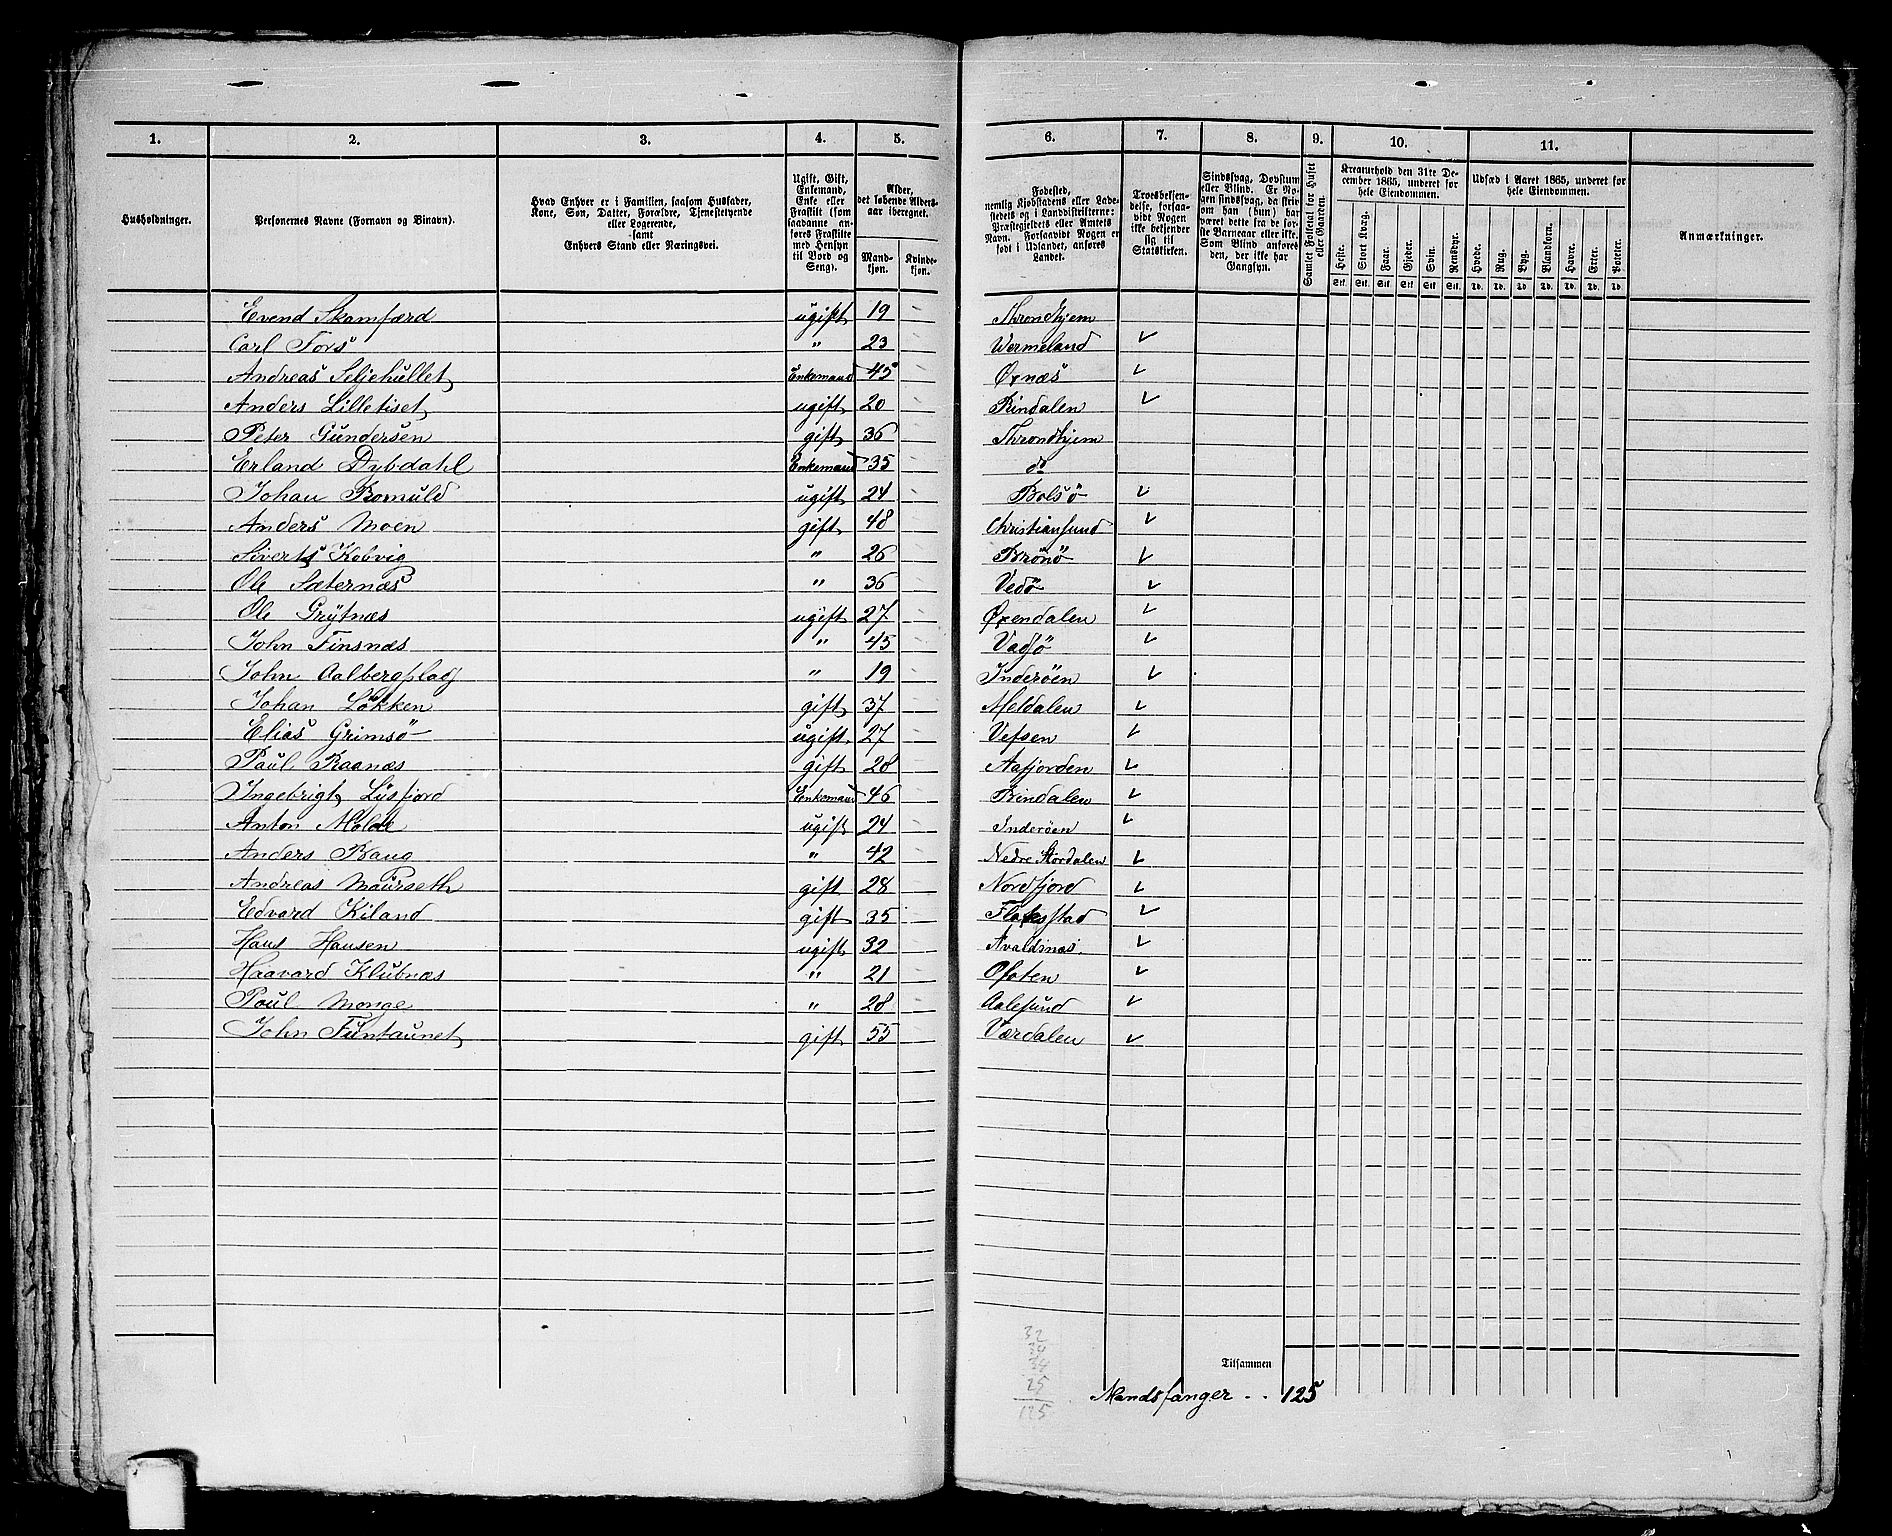 1. 2. 3. 4. 5. 6. 7. 8. 9. 10. 11.
Husholdninger.
Personernes Navne (Fornavn og Binavn).
Hvad Enhver er i Familien, saasom Husfader,
Kone, Søn, Datter, Forældre, Tjenestetyende
eller Logerende,
samt
Enhvers Stand eller Næringsvei.
Ugift, Gift,
Enkemand,
Enke eller
Fraskilt (som
saadanne an-
føres Fraskilte
med Hensyn
til Bord og
Seng).
Alder,
det løbende Alders-
aar iberegnet.
Mand-
kjøn.
Kvinde-
kjøn.
Fødested,
nemlig Kjøbstadens eller Lade-
stedets og i Landdistrikterne:
Præstegjeldets eller Amtets
Navn. Forsaavidt Nogen er
født i Udlandet, anføres
Landet.
Troesbekjen-
delse, forsaa-
vidt Nogen
ikke bekjender
sig til
Statskirken.
Sindssvag, Døvstum
eller Blind. Er No-
gen sindssvag, da skriv
om han (hun) har
været dette fra de før-
ste Barneaar eller ikke.
Som Blind anføres
den, der ikke har
Gangsyn.
Samlet Folketal for Huset
eller Gaarden.
Kreaturhold den 31te De-
cember 1865, underet for
hele Eiendommen.
Heste. Stort Kvæg. Faar. Gjeder. Svin. Rensdyr.
Stk. Stk. Stk. Stk. Stk. Stk.
Udsæd i Aaret 1865, underet for
hele Eiendommen.
Hvede. Rug. Byg. Blandkorn. Havre. Erter. Poteter.
Td. Td. Td. Td. Td. Td. Td.
Anmærkninger.
Evend Skamfærd ugift 19 Throndhjem
Carl Fors " 23 Wermeland
Andreas Seljehullet Enkemand 45 Øxnæs
Anders Lilletiset ugift 20 Rindalen
Peter Gundersen gift 36 Throndhjem
Erland Dybdahl Enkemand 35 do
Johan Romuld ugift 24 Bolsö
Anders Moen gift 48 Christiansund
Siverts Kobvig " 26 Brönö
Ole Sæternæs " 36 Vedö
Ole Grytnæs ugift 27 Øxendalen
John Finsnæs " 45
John Aalbergsplads " 19 Inderöen
Johan Lökken gift 37 Meldalen
Elias Grimsö ugift. 27 Vefsen
Paul Raanæs gift 28 Aafjorden
Ingebrigt Lusfjord Enkemand 46 Rindalen
Anton Molde ugift 24 Inderöen
Anders Baug " 42 Nedre Stordalen
Andreas Maurseth gift 28 Nordfjord
Edvard Kiland gift 35 Flakstad
Hans Hansen ugift 32 Avaldsnæs
Haavard Klubnæs " 21 Ofoten
Paul Monge " 28 Aalesund
John Funtaunet gift 55 Værdalen
Tilsammen
32
34
34
25
125
Mandsfanger . . 125